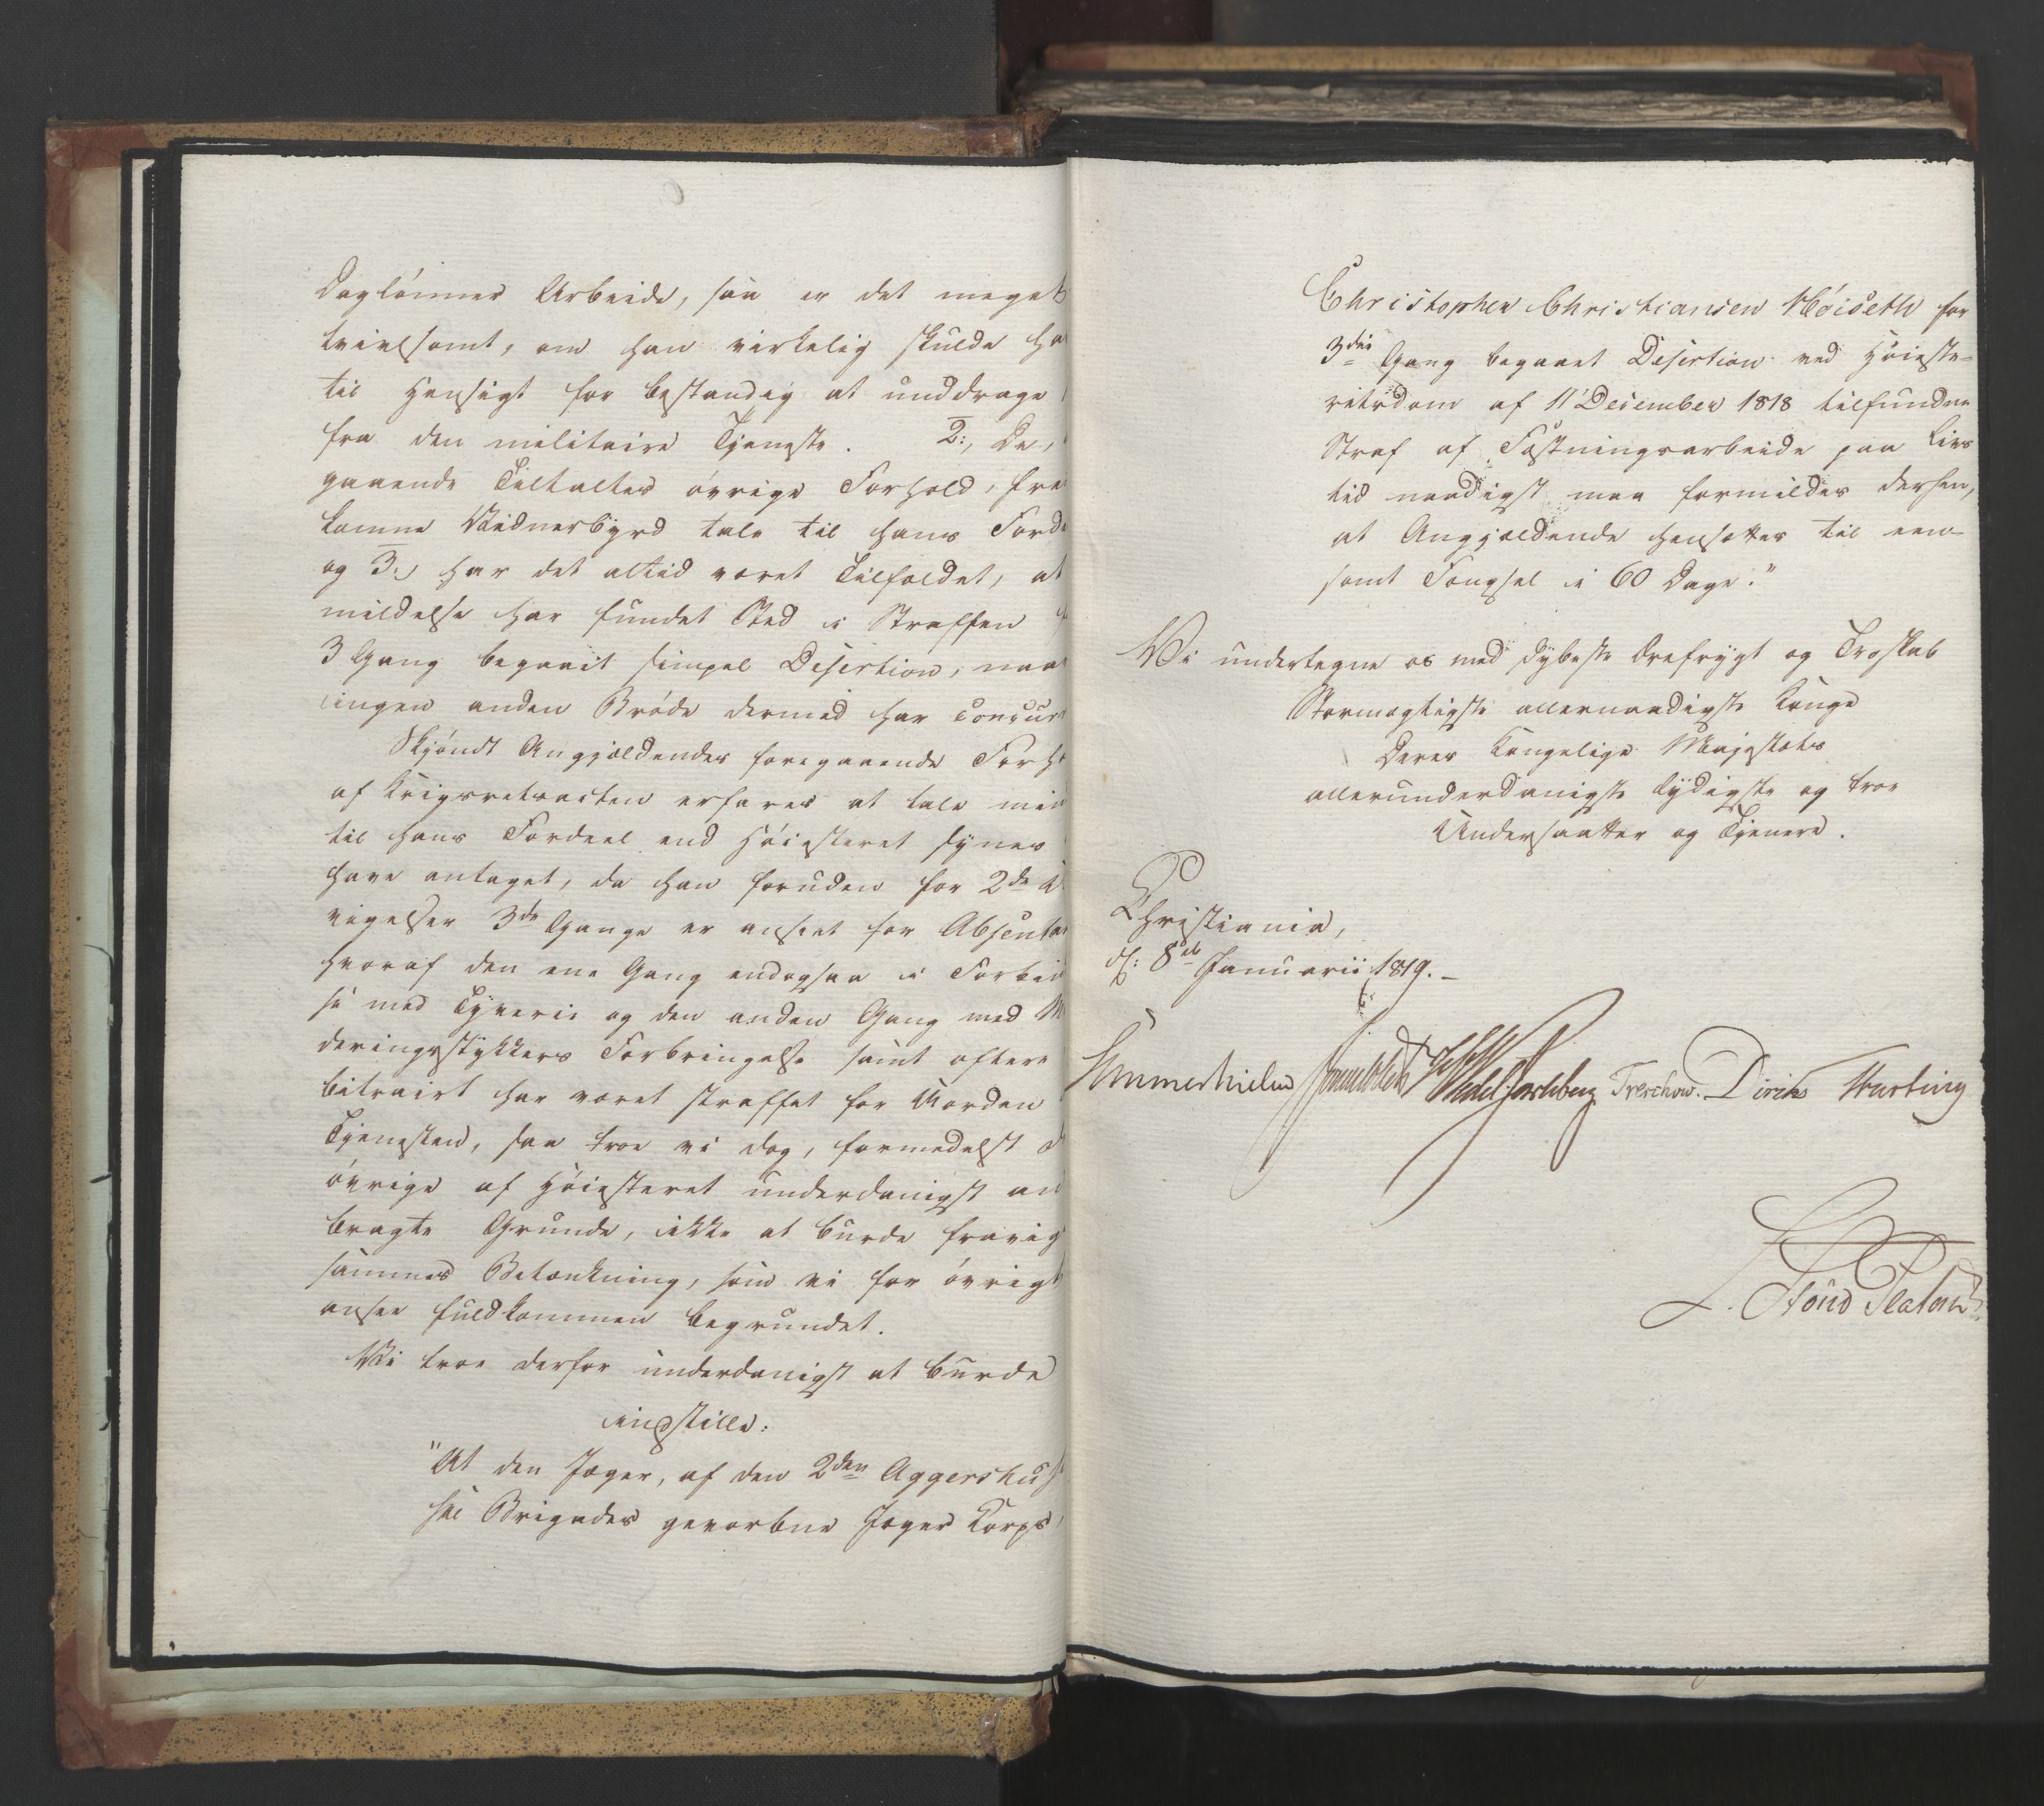 Daglønner Arbeide, saa er det meget
tvivlsomt, om han virkelig skulde ha
til Hensigt for bestandig at unddrage
fra den militaire Tjeneste. 2:, De,
gaaende Tiltaltes øvrige Forhold, fre
komne Vidnesbyrd tale til hans Forde
og 3:, har det altid været Tilfældet, at
mildelse har fundet Sted i Straffen
3 Gang begaait simpel Desertion, naar
ingen anden Brøde dermed har concur
Skjøndt Angjældendes foregaaende Forh
af Krigsretsacten erfares at tale min
til hans Fordeel end Høiesteret synes
have antaget, da han foruden for 2de U
vigelser 3de Gange er anseet for Absenta
hvoraf den ene Gang endogsaa i Forbin
se med Tyverie og den anden Gang med M
deringsstykkers Forbringelse samt oftere
bitrairt har været straffet for Uorden
Tjenesten, saa troe vi dog, formedelst d
øvrige af Høiesteret underdanigst an
bragte Grunde, ikke at burde fravig
sammes Betænkning, som vi for øvrigt
ansee fuldkommen begrundet.
Vi troe derfor underdanigst at burde
indstille:
"At den Jæger, af den 2den Aggershus
ske Brigades gevorbne Jæger Corps,
Christopher Christiansen Høiseth for
3die Gang begaaet Desertion ved Høieste-
retsdom af 11 December 1818 tilfundne
Straf af Fæstningsarbeide paa Livs
tid naadigst maa formildes derhen,
at Angjældende hensættes til een-
somt Fængsel i 60 Dage."
Vi undertegne os med dybeste Ærefrygt og Troskab
Stormægtigste allernaadigste Konge
Deres Kongelige Majestæts
allerunderdanigste lydigste og troe
Undersaatter og Tjenere.
Christiania,
d: 8de Januarii 1819.-
Sommerhielm Wedel Jarlsberg Treschow. Diriks Motzfeldt